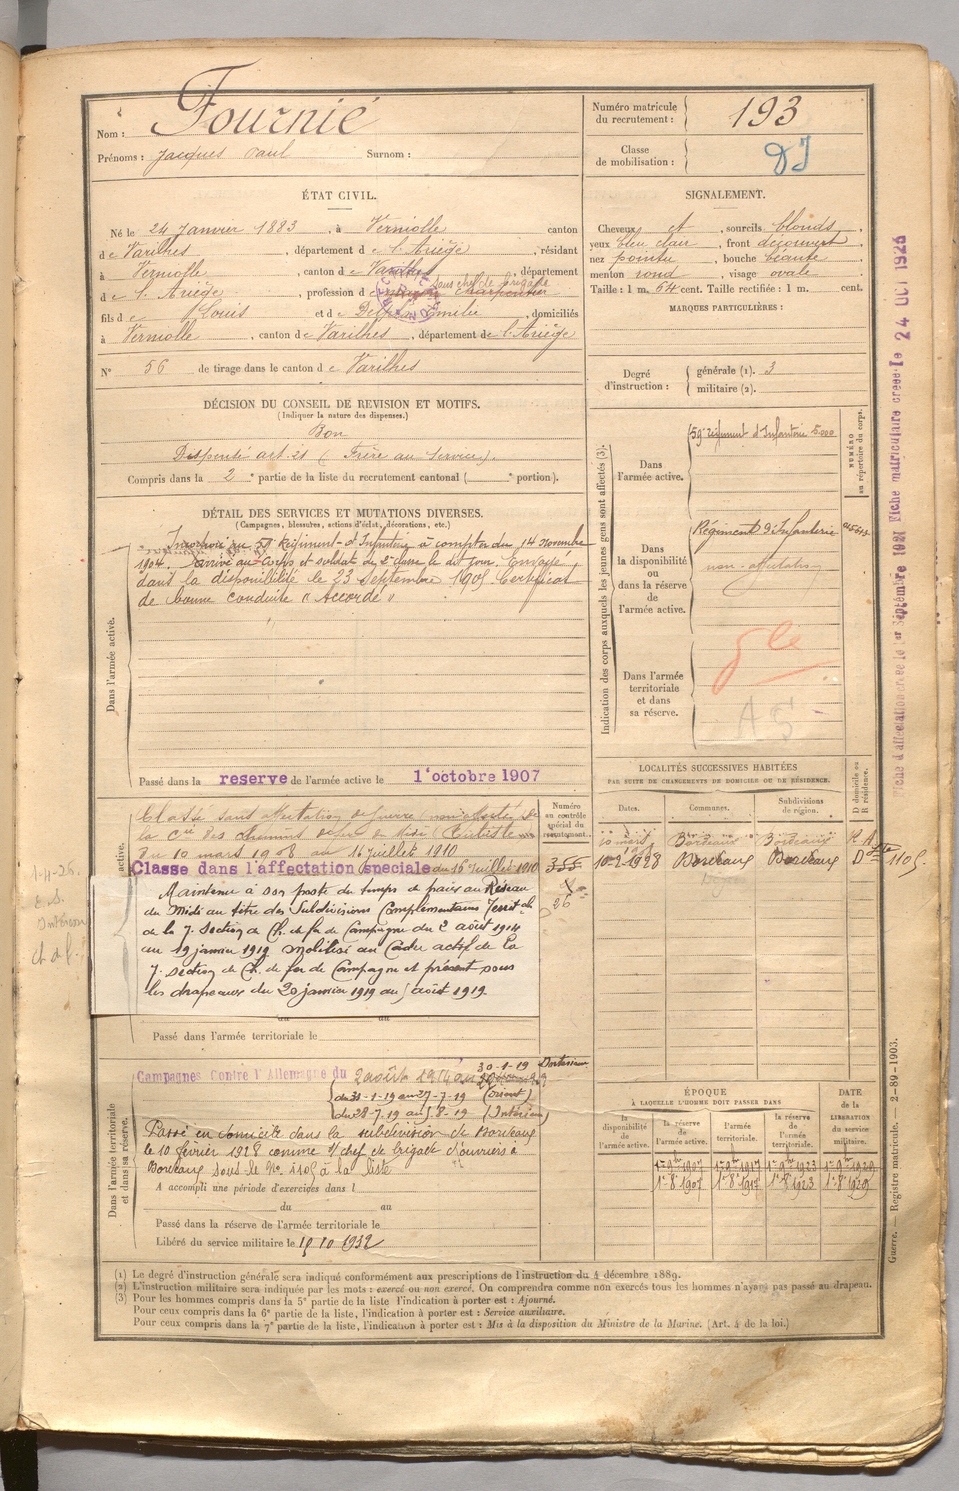 Nom : Fournié
Prénoms : Jacques Paul Surnom :
Numéro matricule du recrutement : 193
Classe de mobilisation :
ÉTAT CIVIL.
Né le 24 Janvier 1883, à Verniolle canton
de Varilhes, département de l'Ariège, résidant
à Verniolle, canton de Varilhes, département
de l'Ariège, profession de sous chef de brigade charpentier
fils de Louis et de Delphine Emilie, domiciliés
à Verniolle, canton de Varilhes, département de l'Ariège
N° 56 de tirage dans le canton de Varilhes
SIGNALEMENT.
Cheveux et, sourcils blonds
yeux bleu clair, front découvert
nez pointu, bouche
menton rond, visage ovale
Taille : 1 m. 64 cent. Taille rectifiée : 1 m. cent.
MARQUES PARTICULIÈRES :
Degré d'instruction : générale (1). 3
militaire (2).
DÉCISION DU CONSEIL DE REVISION ET MOTIFS.
(Indiquer la nature des dispenses.)
Bon
Dispensé art. 21 (Frère au service).
Compris dans la 2e partie de la liste du recrutement cantonal ( e portion).
DÉTAIL DES SERVICES ET MUTATIONS DIVERSES.
(Campagnes, blessures, actions d'éclat, décorations, etc.)
Dans l'armée active.
Incorporé au 59 Régiment d'Infanterie à compter du 14 Novembre
1904. Arrivé au Corps et soldat de 2e classe le dit jour. Envoyé
dans la disponibilité le 23 Septembre 1905 Certificat
de bonne conduite "Accordé"
Passé dans la reserve de l'armée active le 1er octobre 1907
Indication des corps auxquels les jeunes gens sont affectés (3).
NUMÉRO au répertoire du corps.
Dans l'armée active.
59e régiment d'Infanterie
Dans la disponibilité ou dans la réserve de l'armée active.
Régiment d'Infanterie
non-affectation
Dans l'armée territoriale et dans sa réserve.
LOCALITÉS SUCCESSIVES HABITÉES
PAR SUITE DE CHANGEMENTS DE DOMICILE OU DE RÉSIDENCE.
Dates. Communes. Subdivisions de région. D domicile ou R résidence.
Bordeaux Bordeaux
10-2-1928 Bordeaux Bordeaux 1105
Numéro au contrôle spécial du recrutement.
355
26
Classé sans affectation de guerre
la Cie des chemins de fer du Midi
du 10 mars 1908 au 16 juillet 1910
Classé dans l'affectation spéciale du 16 juillet 1910
Maintenu à son poste du temps de paix au Réseau
du Midi au titre des Subdivisions Complémentaires Territles
de la 7e Section de Ch. de fer de Campagne du 2 août 1914
au 19 janvier 1919 mobilisé au Cadre actif de la
7e section de Ch. de fer de Campagne et présent sous
les drapeaux du 20 janvier 1919 au 5 août 1919.
Passé dans l'armée territoriale le
Dans l'armée territoriale et dans sa réserve.
Campagnes Contre l'Allemagne du 2 août 1914 au 30-1-19 Intérieur
du 31-1-19 au 27-7-19 (Orient)
du 28-7-19 au 5-8-19 (Intérieur)
Passé en domicile dans la subdivision de Bordeaux
le 10 février 1928 comme s/chef de brigade d'ouvriers à
Bordeaux sous le No. 1105 à la liste
A accompli une période d'exercices dans l
du au
Passé dans la réserve de l'armée territoriale le
Libéré du service militaire le 15 10 1932
ÉPOQUE
À LAQUELLE L'HOMME DOIT PASSER DANS
DATE de la LIBÉRATION du service militaire.
la disponibilité de l'armée active. la réserve de l'armée active. l'armée territoriale. la réserve de l'armée territoriale.
1er 9bre 1907 1er 9bre 1917 1er 9bre 1923 1er 9bre 1929
1er 8bre 1907 1er 8bre 1917 1er 8bre 1923 1er 8bre 1929
(1) Le degré d'instruction générale sera indiqué conformément aux prescriptions de l'instruction du 4 décembre 1889.
(2) L'instruction militaire sera indiquée par les mots : exercé ou non exercé. On comprendra comme non exercés tous les hommes n'ayant pas passé au drapeau.
(3) Pour les hommes compris dans la 5e partie de la liste l'indication à porter est : Ajourné.
Pour ceux compris dans la 6e partie de la liste, l'indication à porter est : Service auxiliaire.
Pour ceux compris dans la 7e partie de la liste, l'indication à porter est : Mis à la disposition du Ministre de la Marine. (Art. 4 de la loi.)
Fiche d'affectation créée le 1er Septembre 1927 Fiche matriculaire créée le 24 OCT 1928
Guerre. — Registre matricule. — 2-89-1903.
1-4-26.